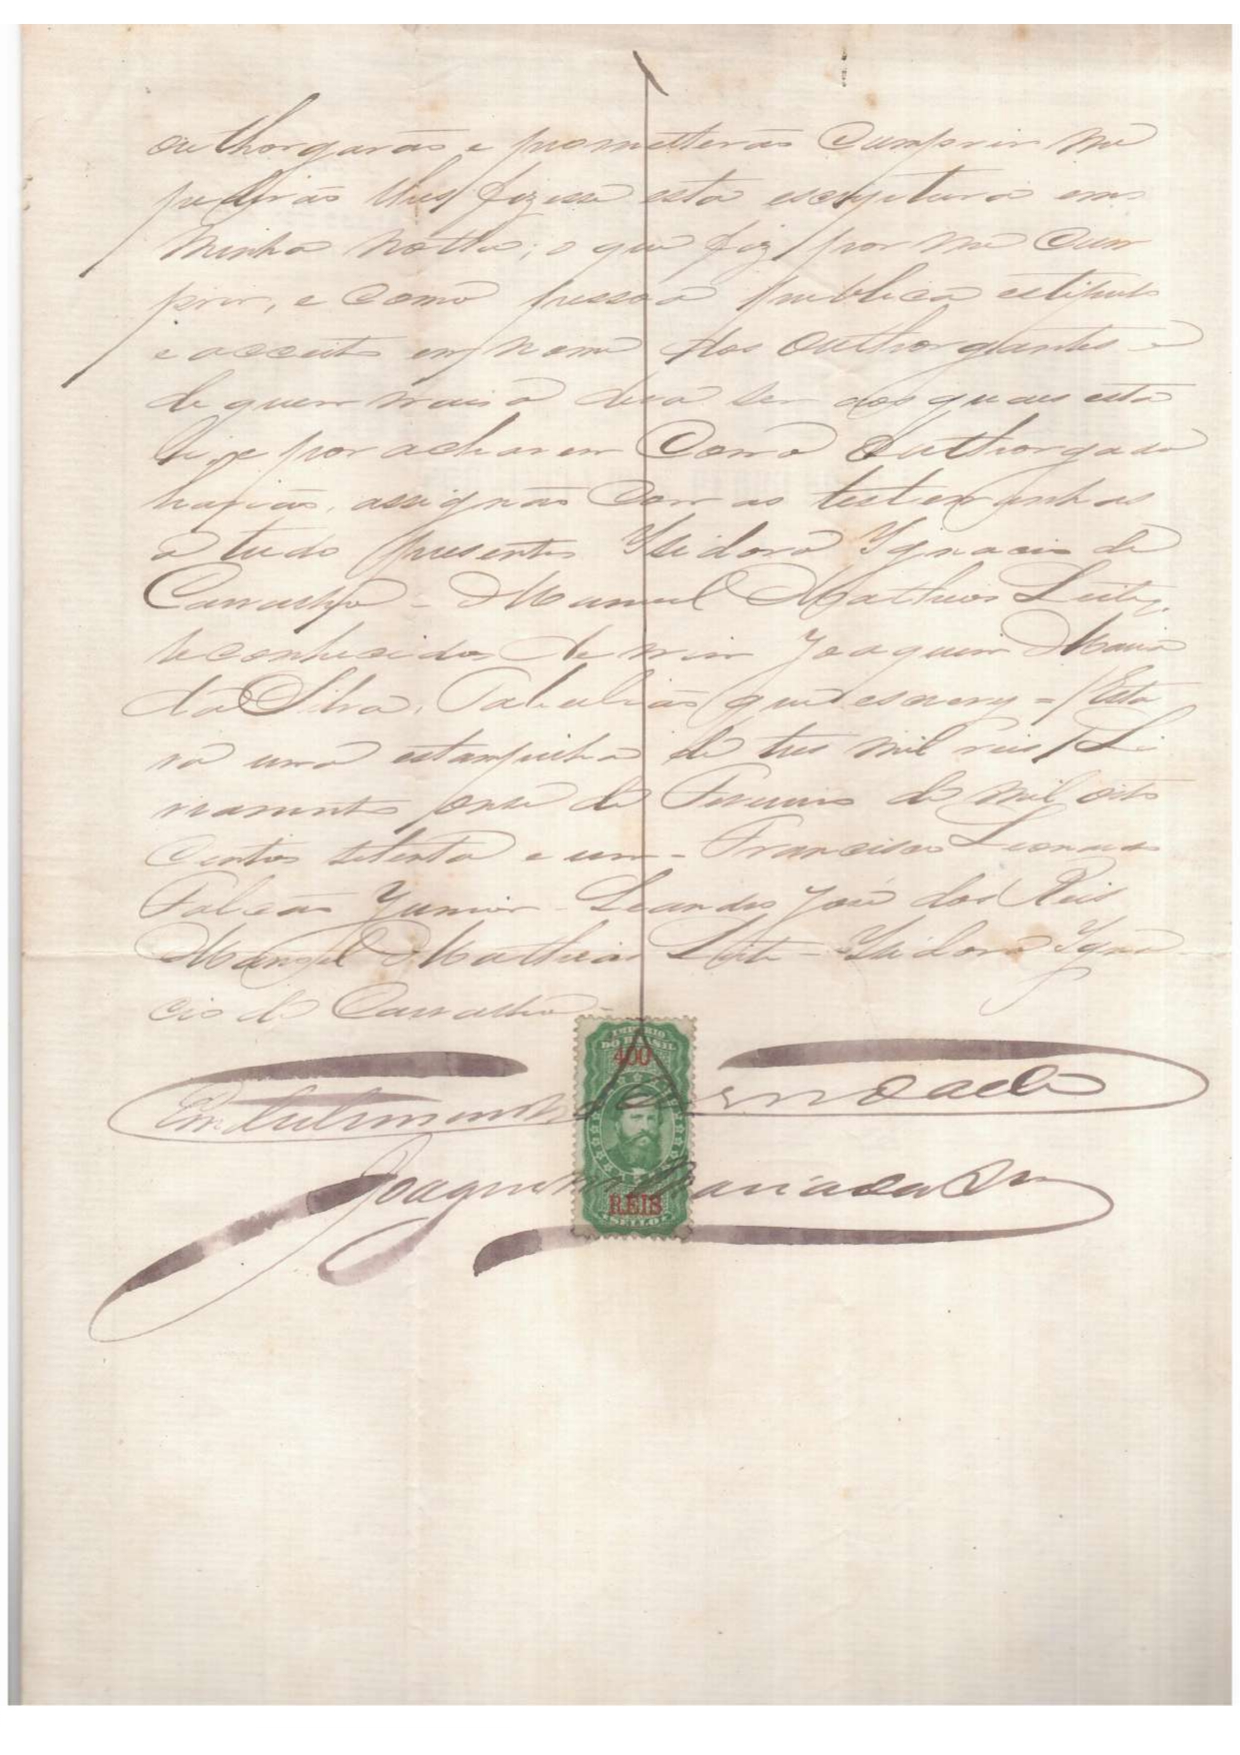 outhorgarão e prometterão Cumprir me
pedirão lhes fizesse esta escriptura em
minha notta, o que fiz por me Cum
prir, e Como pessoa publica estipulo
e acceito em nome dos Outhorgantes e
de quem mais a deva ser aos quaes esta
li, e por acharem Como Outhorgado
havião, assignão Com as testemunhas
a tudo presentes Ysidoro Ygnacio de
Carvalho - Manoel Mathias Leite,
reconhecidos de mim Joaquim Maria
da Silva, Tabelião que escrevy = / Esta
va uma estampilha de tres mil reis / Li
vramento onze de Fevereiro de mil oito
Centos setenta e um - Francisco Leonardo
Falcão Junior - Leandro José dos Reis
Manoel Mathias Leite - Ysidoro Ygna
cio de Carvalho -
IMPERIO
DO BRASIL
400
Em testemunho da verdade
Joaquim Maria da Sa
REIS
SELLO